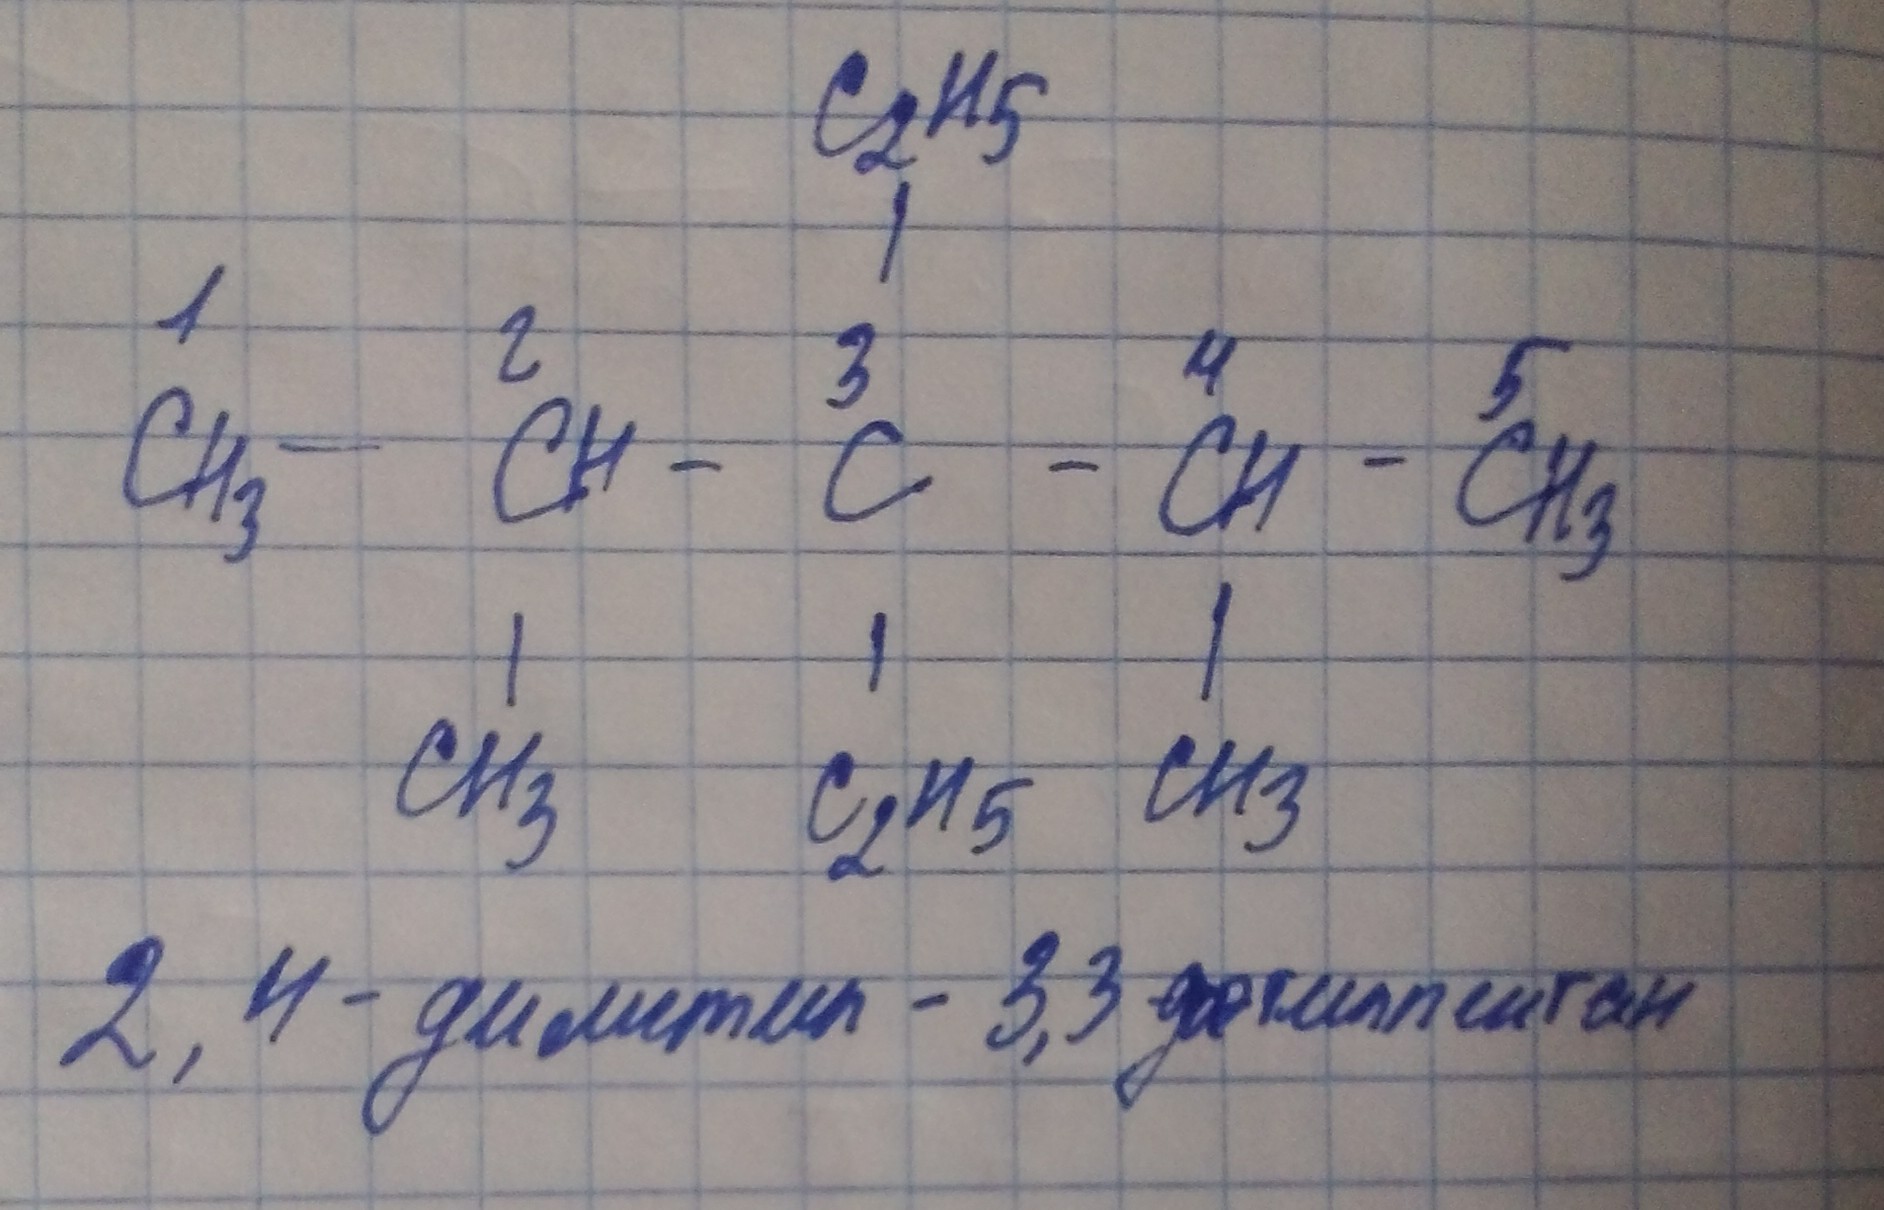 C2H5
|
1 2 3 4 5
CH3 - CH - C - CH - CH3
| | |
CH3 C2H5 CH3
2,4-диметил-3,3 диэтилпентан